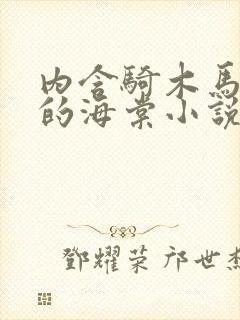 內含騎木馬
的海棠小說
鄧耀荣 邝世杰